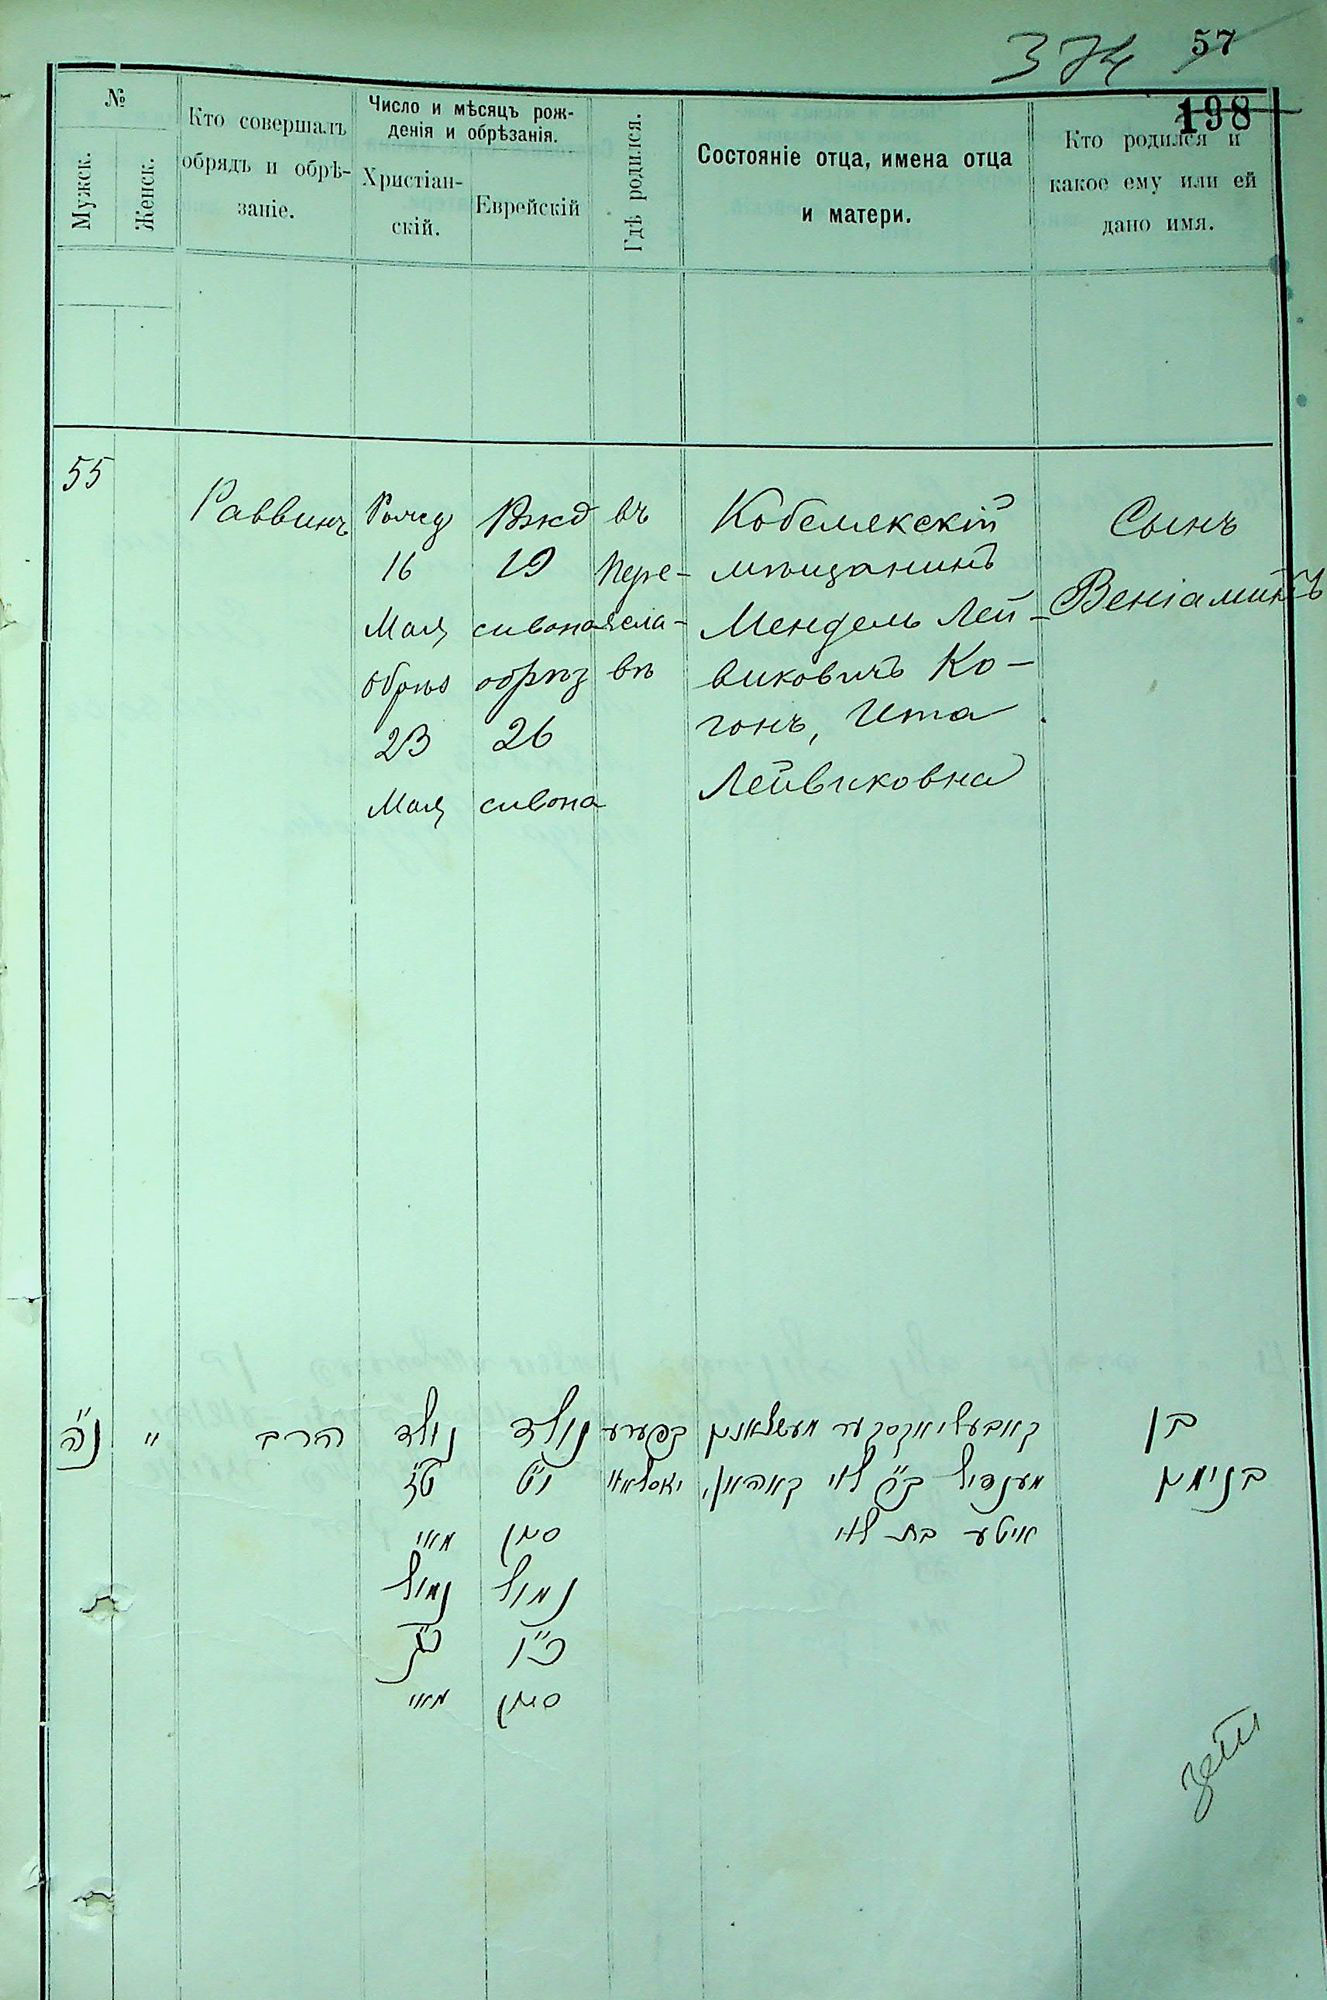 374 57
198
№
Мужск.
Женск.
Кто совершалъ
обрядъ и обрѣ-
заніе.
Число и мѣсяцъ рож-
денія и обрѣзанія.
Христіан-
скій.
Еврейскій
Гдѣ родился.
Состояніе отца, имена отца
и матери.
Кто родился и
какое ему или ей
дано имя.
55
Раввинъ
16
Мая
23
Мая
19
сивона
обрѣз
26
сивона
въ
Пере-
ясла-
вѣ
Кобелякскій
мѣщанинъ
Мендель Лей-
виковичъ Ко-
гонъ, Ита
Лейвиковна
Сынъ
Веніаминъ
נ"ה
"
הרב
נולד
ט"ז
מאי
נמול
כ"ג
מאי
נולד
י"ט
סיון
נמול
כ"ו
סיון
בפערע
יאסלאוו
קאבעליאקסקער מעשטשאנין
מענדיל ב"ר לוי קאהאן,
איטע בת לוי
בן
בנימין